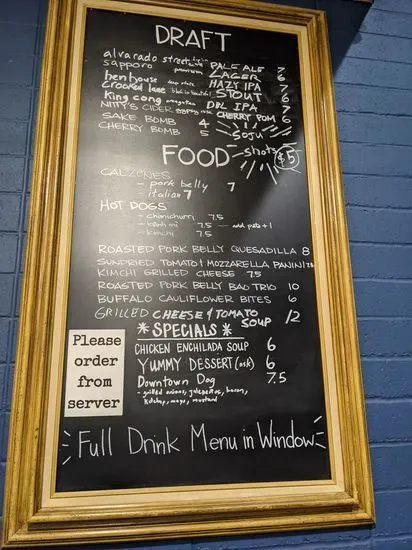 DRAFT
alvarado street PALE ALE 7
sapporo premium LAGER 6
henhouse HAZY IPA 7
crooked lane STOUT 6
king cong DBL IPA 7
NITTY'S CIDER CHERRY POM 6
SAKE BOMB 4
CHERRY BOMB 5
SOJU shots $5
FOOD
CALZONES
- pork belly 7
- italian 7
HOT DOGS
- chimichurri 7.5
- banh mi 7.5 - add pate +1
- kimchi 7.5
ROASTED PORK BELLY QUESADILLA 8
SUNDRIED TOMATO & MOZZARELLA PANINI
KIMCHI GRILLED CHEESE 7.5
ROASTED PORK BELLY BAO TRIO 10
BUFFALO CAULIFLOWER BITES 6
GRILLED CHEESE & TOMATO SOUP 12
* SPECIALS *
CHICKEN ENCHILADA SOUP 6
YUMMY DESSERT (ask) 6
Downtown Dog 7.5
- grilled onions, jalapeños, bacon,
ketchup, mayo, mustard
Please
order
from
server
Full Drink Menu in Window